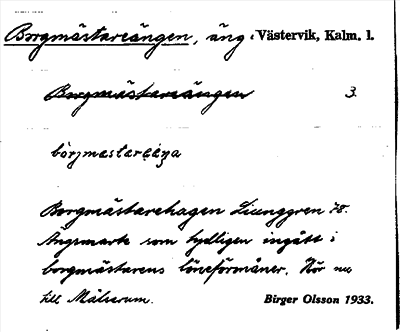 Borgmästareängen, äng. Västervik, Kalm. l.
Borgmästareängen 3.
börjmestarεŋa
Borgmästarehagen Liunggren 78.
Ängsmark som tydligen ingått i
borgmästarens löneförmåner. Hör nu
till Målserum. Birger Olsson 1933.